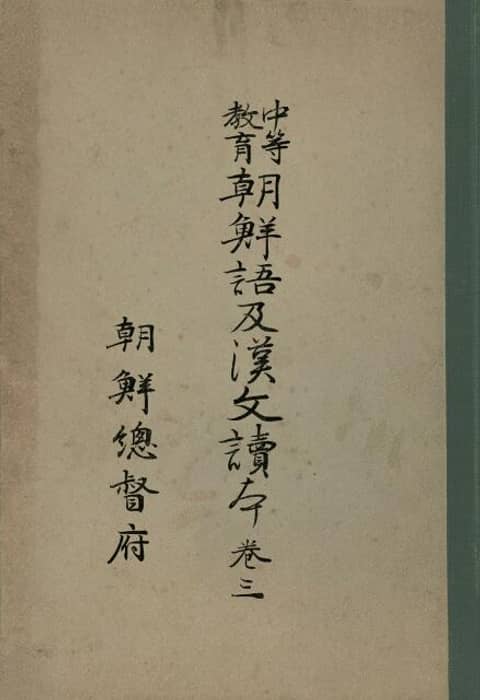 中等教育朝鮮語及漢文讀本 卷三
朝鮮總督府